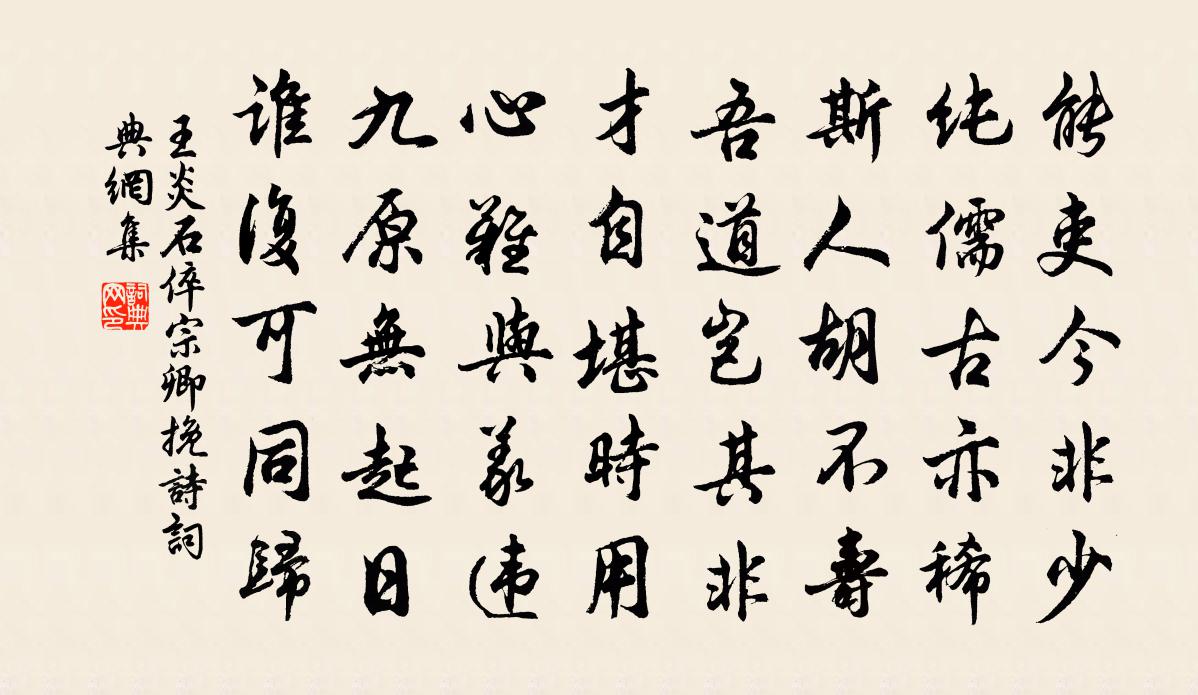 能吏今非少
纯儒古亦稀
斯人胡不壽
吾道豈其非
才自堪時用
心難與義違
九原無起日
誰復可同歸
王炎石倅宗卿挽詩詞
典網集
詞典
网印